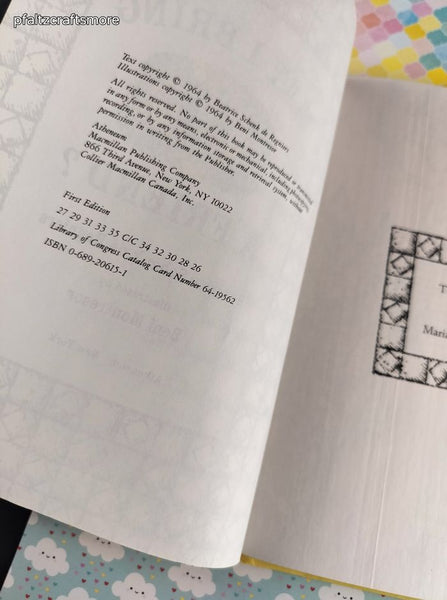 pfaltzcraftsmore
Text copyright © 1964 by Beatrice Schenk de Regniers
Illustrations copyright © 1964 by Beni Montresor
All rights reserved. No part of this book may be reproduced or transmitted
in any form or by any means, electronic or mechanical, including photocopying,
recording, or by any information storage and retrieval system, without
permission in writing from the Publisher.
Atheneum
Macmillan Publishing Company
866 Third Avenue, New York, NY 10022
Collier Macmillan Canada, Inc.
First Edition
27 29 31 33 35 C/C 34 32 30 28 26
Library of Congress Catalog Card Number 64-19562
ISBN 0-689-20615-1
T
Maria